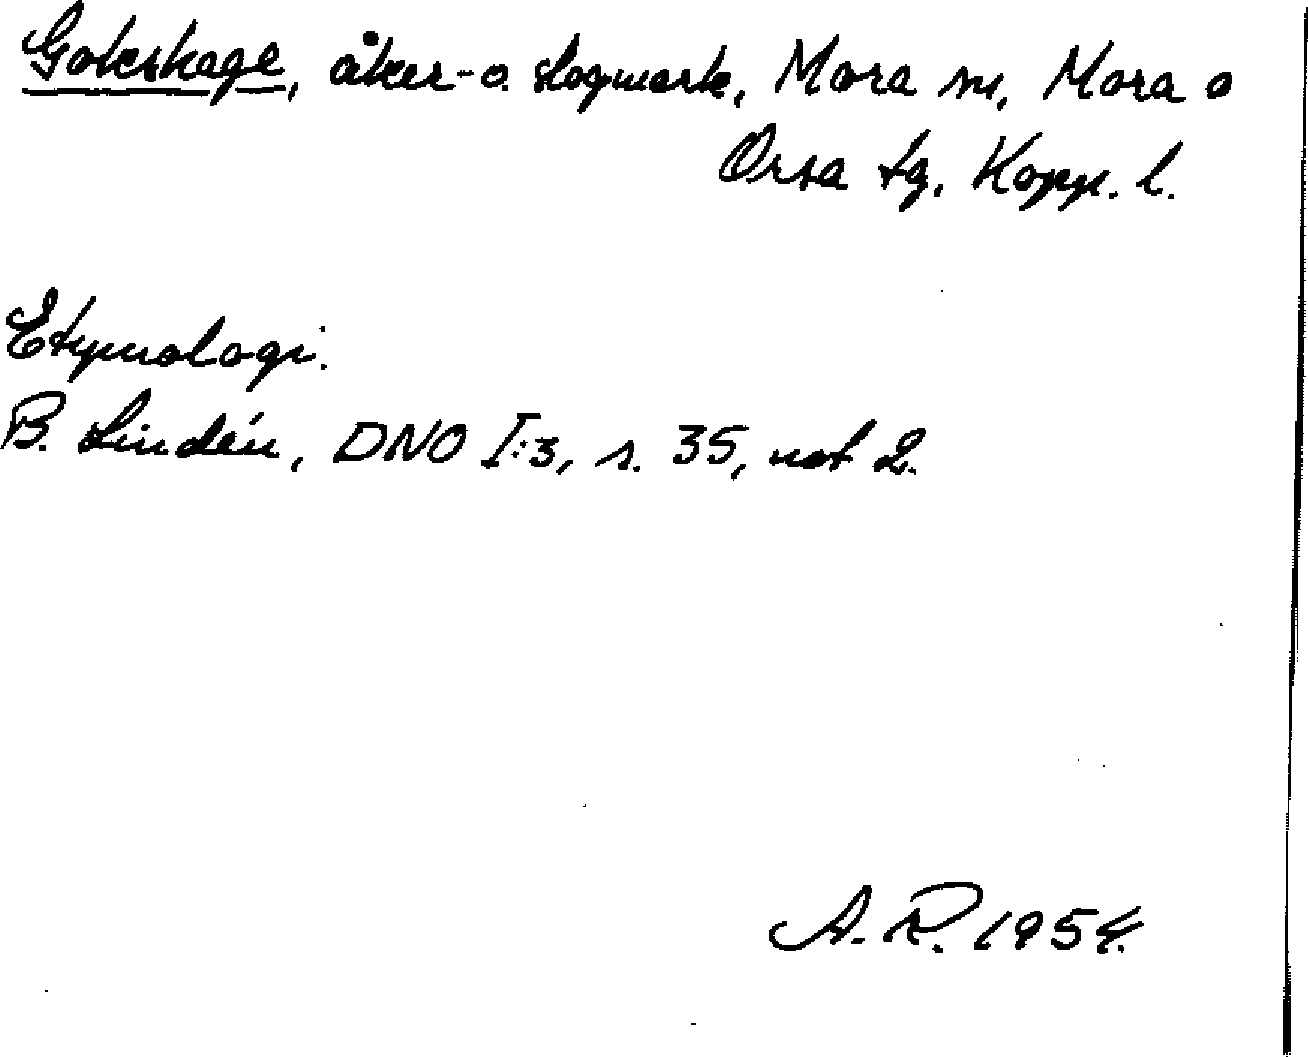 Gokshage, åker- o. slogmark, Mora sn, Mora o
Orsa tg, Kopp. l.
Etymologi:
B. Lindén, DNO I:3, s. 35, not 2.
A. R. 1954.